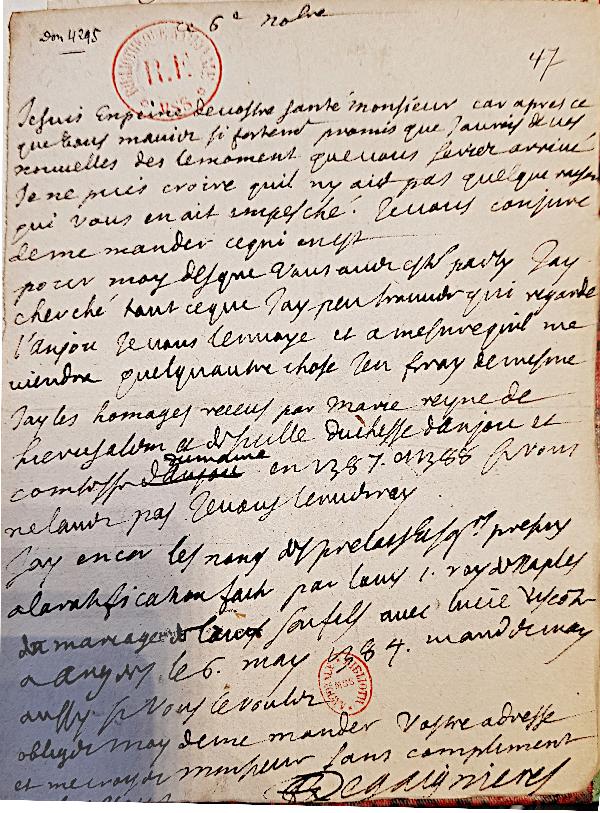 Don 4295
ce 6e nobre
BIBLIOTHEQUE IMPERIALE
R.F.
MSS
47
Je suis en peine de vostre santé monsieur car apres ce
que vous maviez si fortemt promis que Jaurois de vos
nouvelles des le moment que vous seriez arrivé
Je ne puis croire quil ny aid pas quelque raison
qui vous en ait empesché. Je vous conjure
de me mander ce qui en est
pour moy des que vous avez esté party Jay
cherché tout ce que Jay peu trouver qui regarde
l'anjou Je vous lenvoye et a mesure quil me
viendra quelquautre chose Jen feray de mesme
Jay les homages receus par marie reyne de
hierusalem et de sicille duchesse d'anjou et
comtesse du maine en 1387. et 1388 si vous
ne lavez pas Je vous lenvoieray
Jay encor les noms des prelats et sgrs presens
a la ratification faite par louis 1. roy de Naples
du mariage de son fils avec lucie viscomti
a angers le 6. may 1384. mandez moy
aussy si vous le voulez
BIBLIOTH. MSS
obligez moy de me mander vostre adresse
et me croyez monsieur sans compliment
De Gaignieres